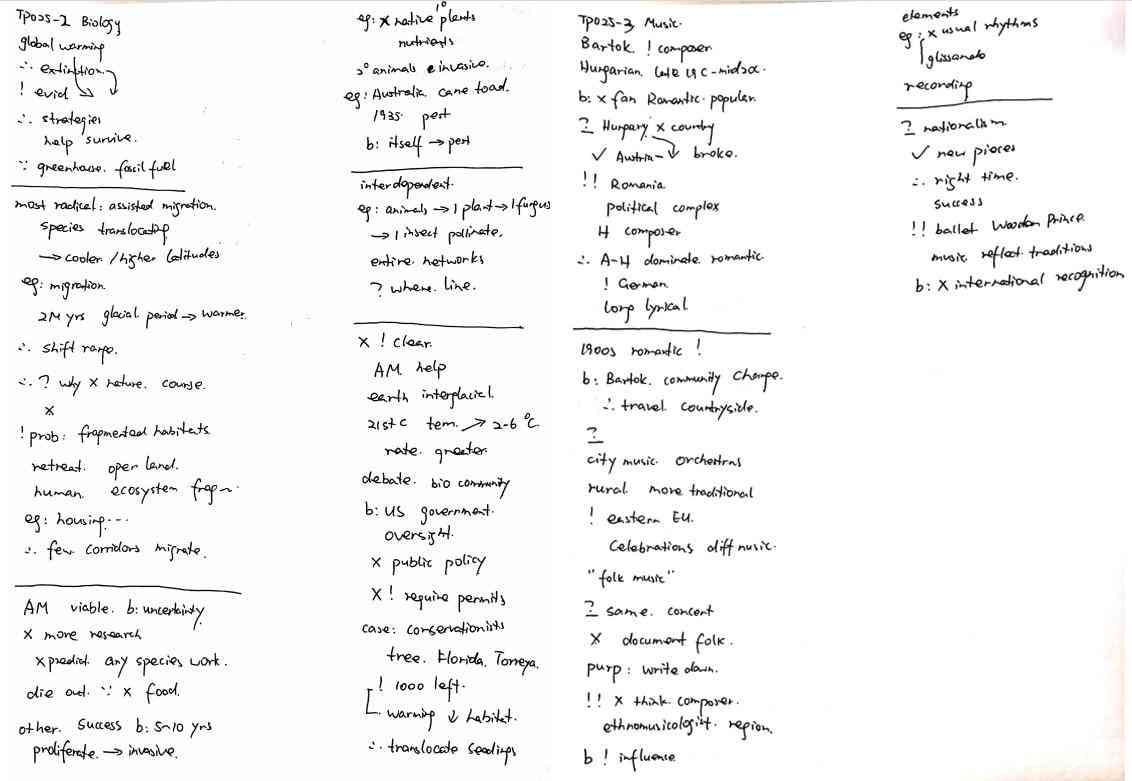 TPO25-2 Biology
global warming
∴ extinction
! evid
∴ strategies
help survive.
∵ greenhouse. fossil fuel
most radical: assisted migration.
species translocating
→ cooler / higher latitudes
eg: migration
2M yrs glacial period → warmer.
∴ shift range.
∴ ? why x nature. course.
x
! prob: fragmented habitats
retreat. open land.
human. ecosystem frag~.
eg: housing....
∴ few corridors migrate.
AM viable. b: uncertainty
x more research
x predict. any species work.
die out. ∵ x food.
other. success b: 5~10 yrs
proliferate. → invasive.
eg: x native plants 1°
nutrients
2° animals invasive.
eg: Australia. cane toad.
1935. pest
b: itself → pest
interdependent.
eg: animals → 1 plant → 1 fungus
→ 1 insect pollinate.
entire networks
? where. line.
x ! clear.
AM help
earth interglacial.
21st C tem. ↗ 2-6 °C.
rate. greater.
debate. bio community
b: US government.
oversight.
x public policy
x ! require permits
case: conservationists
tree. Florida. Torreya.
! 1000 left.
warming ↓ habitat.
∴ translocate seedings
TPO25-3 Music.
Bartok. ! composer
Hungarian. late 19 C-mid 20C.
b: x fan Romantic. popular.
? Hungary x country
✓ Austria- ↓ broke.
!! Romania
political complex
H composer
∴ A-H dominate romantic.
! German
long lyrical
1900s romantic !
b: Bartok. community change.
∴ travel countryside.
?
city music. orchestras
rural. more traditional
! eastern EU.
celebrations diff music.
"folk music"
? same. concert
x document folk.
purp: write down.
!! x think composer.
ethnomusicologist. region.
b ! influence
elements
eg: x usual rhythms
glissando
recording
? nationalism
✓ new pieces
∴ right time.
success
!! ballet Wooden Prince.
music reflect traditions
b: x international recognition